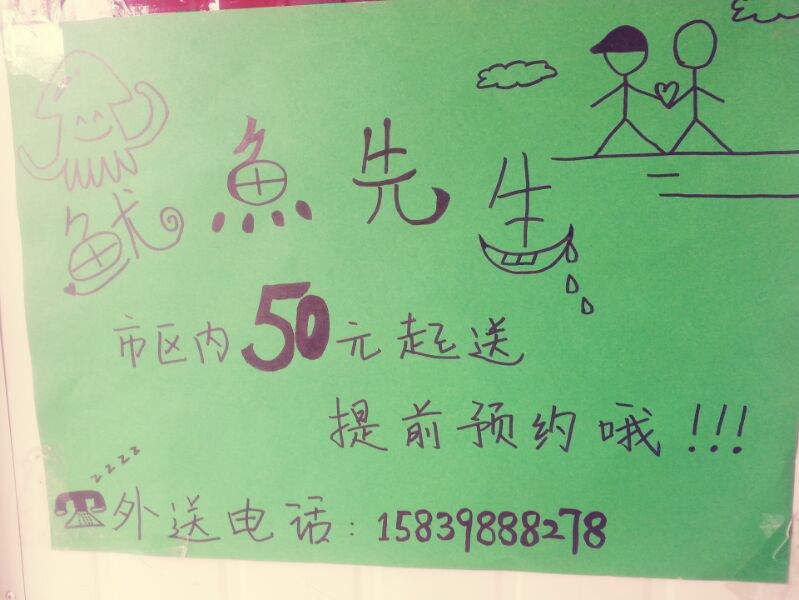 鱿鱼先生
市区内50元起送
提前预约哦!!!
zzzz
外送电话:15839888278